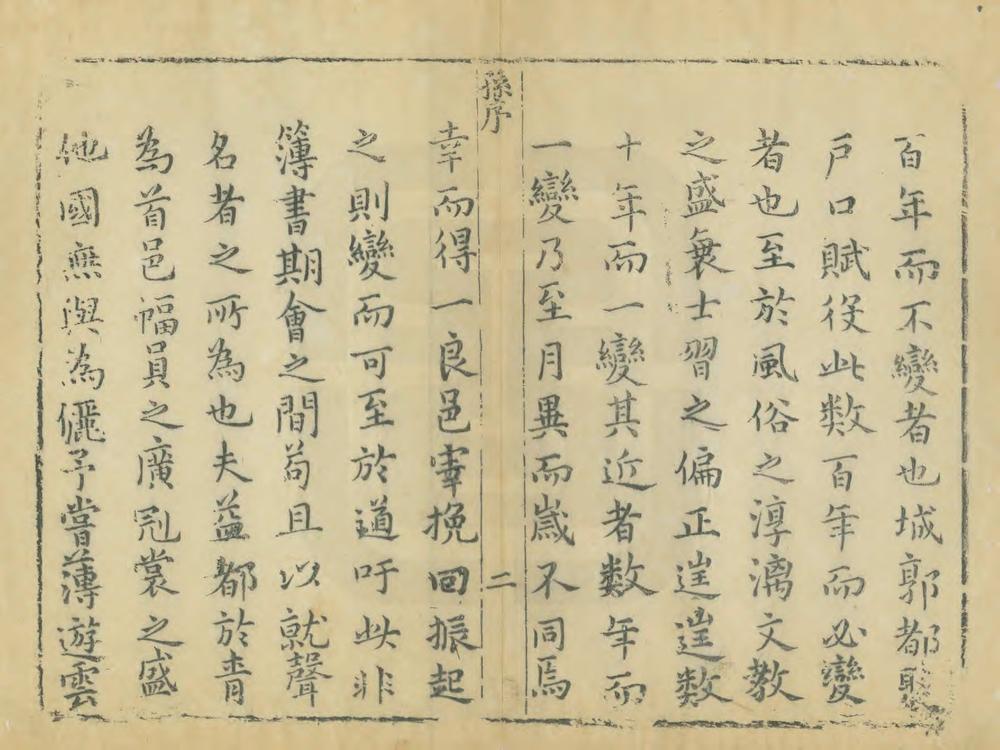 百年而不變者也城郭都聚
戶口賦役此數百年而必變
者也至於風俗之淳漓文教
之盛衰士習之偏正遑遑數
十年而一變其近者數年而
一變乃至月異而歲不同焉
孫序
二
幸而得一良邑宰挽回振起
之則變而可至於道吁此非
簿書期會之間苟且以就聲
名者之所為也夫益都於青
為首邑幅員之廣冠裳之盛
他國無與為儷予嘗薄遊雲